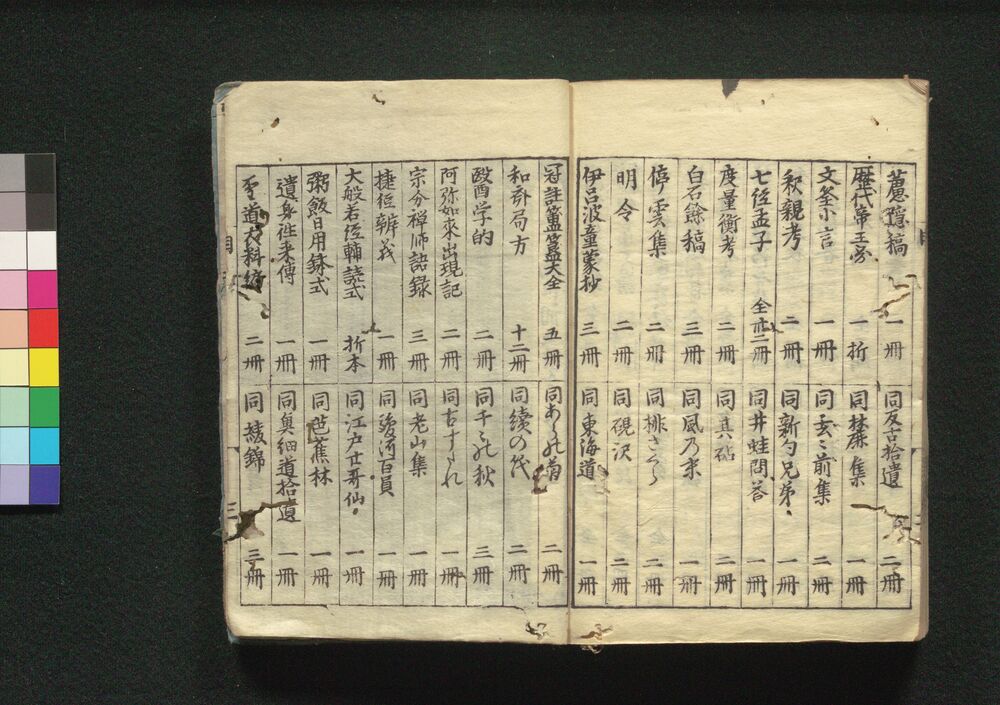 蘐隠稿 一冊
歴代帝王考 一折
文筌小言 一冊
釈親考 二冊
七経孟子 全卅二冊
度量衡考 二冊
白石餘稿 三冊
停雲集 二冊
明令 二冊
伊呂波童蒙抄 三冊
同反古拾遺 二冊
同麓集 一冊
同玄々前集 二冊
同新句兄弟 一冊
同井蛙問答 一冊
同真砧 二冊
同風乃末 一冊
同排さくら 二冊
同硯沢 二冊
同東海道 一冊
冠註簠簋大全 五冊
和剤局方 十二冊
醫学的 二冊
阿弥如来出現記 二冊
宗分禅师語録 三冊
捷径辨義 一冊
大般若経輔読式 折本
粥飯日用鉢式 一冊
遺身往来傳 一冊
聖道大科 二冊
同 二冊
同續の代 二冊
同千々の秋 三冊
同古すたれ 一冊
同老山集 一冊
同駿河百員 一冊
同江戸廿哥仙 一冊
同芭蕉林 一冊
同奥細道拾遺 一冊
同綾錦 三冊